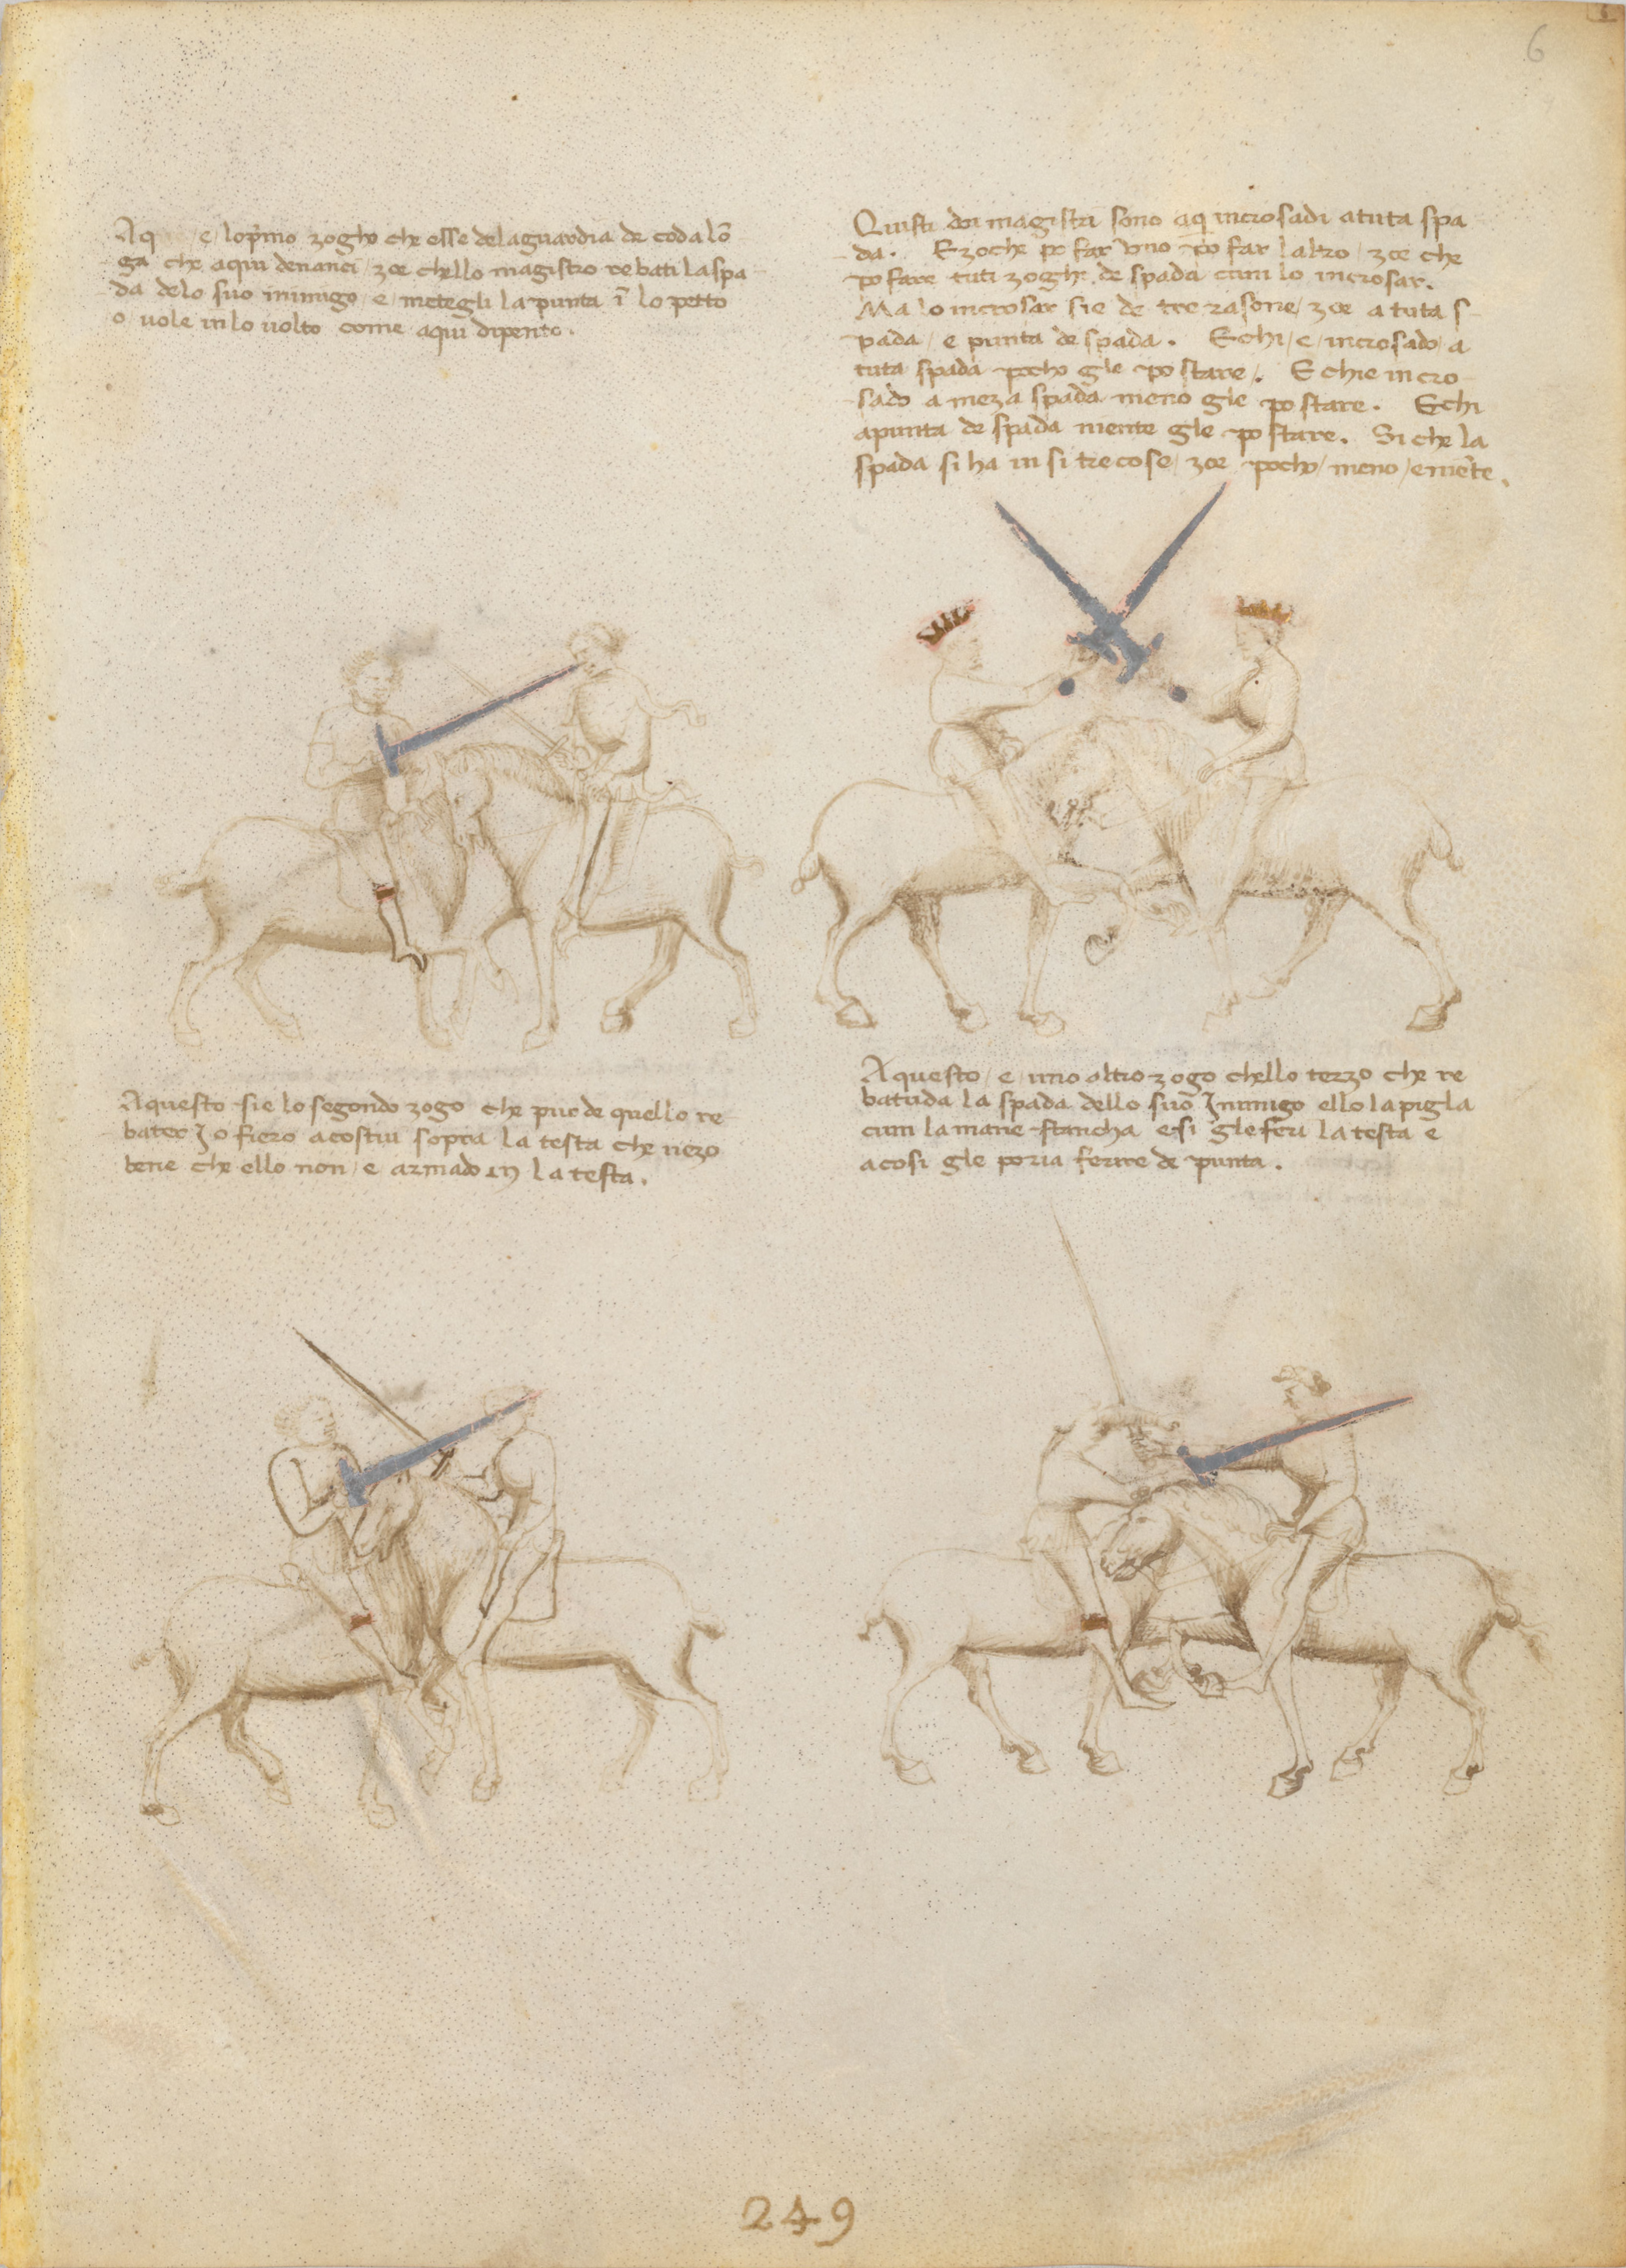 6
Aq e lop̄mo zogho che esse delaguardia de coda lō
ga che aqui denanci / zoe chello magistro rebati la spa
da delo suo inimigo / e / metegli la punta ī lo petto
o uole in lo uolto come aqui dipento.
Quisti doi magistri sono aq incrosadi a tuta spa
da. E zoche po far vno po far laltro / zoe che
po fare tuti zoghi de spada cum lo incrosar.
Ma lo incrosar sie de tre rasone / zoe a tuta s
pada / e punta de spada. E chi / e / incrosado a
tuta spada pocho gle po stare /. E chie incro
sado a meza spada meno gle po stare. E chi
a punta de spada niente gle po stare. Si che la
spada si ha in si tre cose / zoe pocho / meno / e niēte.
Aquesto sie lo segondo zogo che pur de quello re
bater Io fiero a costui sopra la testa che uezo
bene che ello non / e armado in la testa.
Aquesto / e / uno altro zogo chello terzo che re
batuda la spada dello suo Inimigo ello la pigla
cum la mane stancha e si gle feri la testa e
acosi gle poria ferire de punta.
249